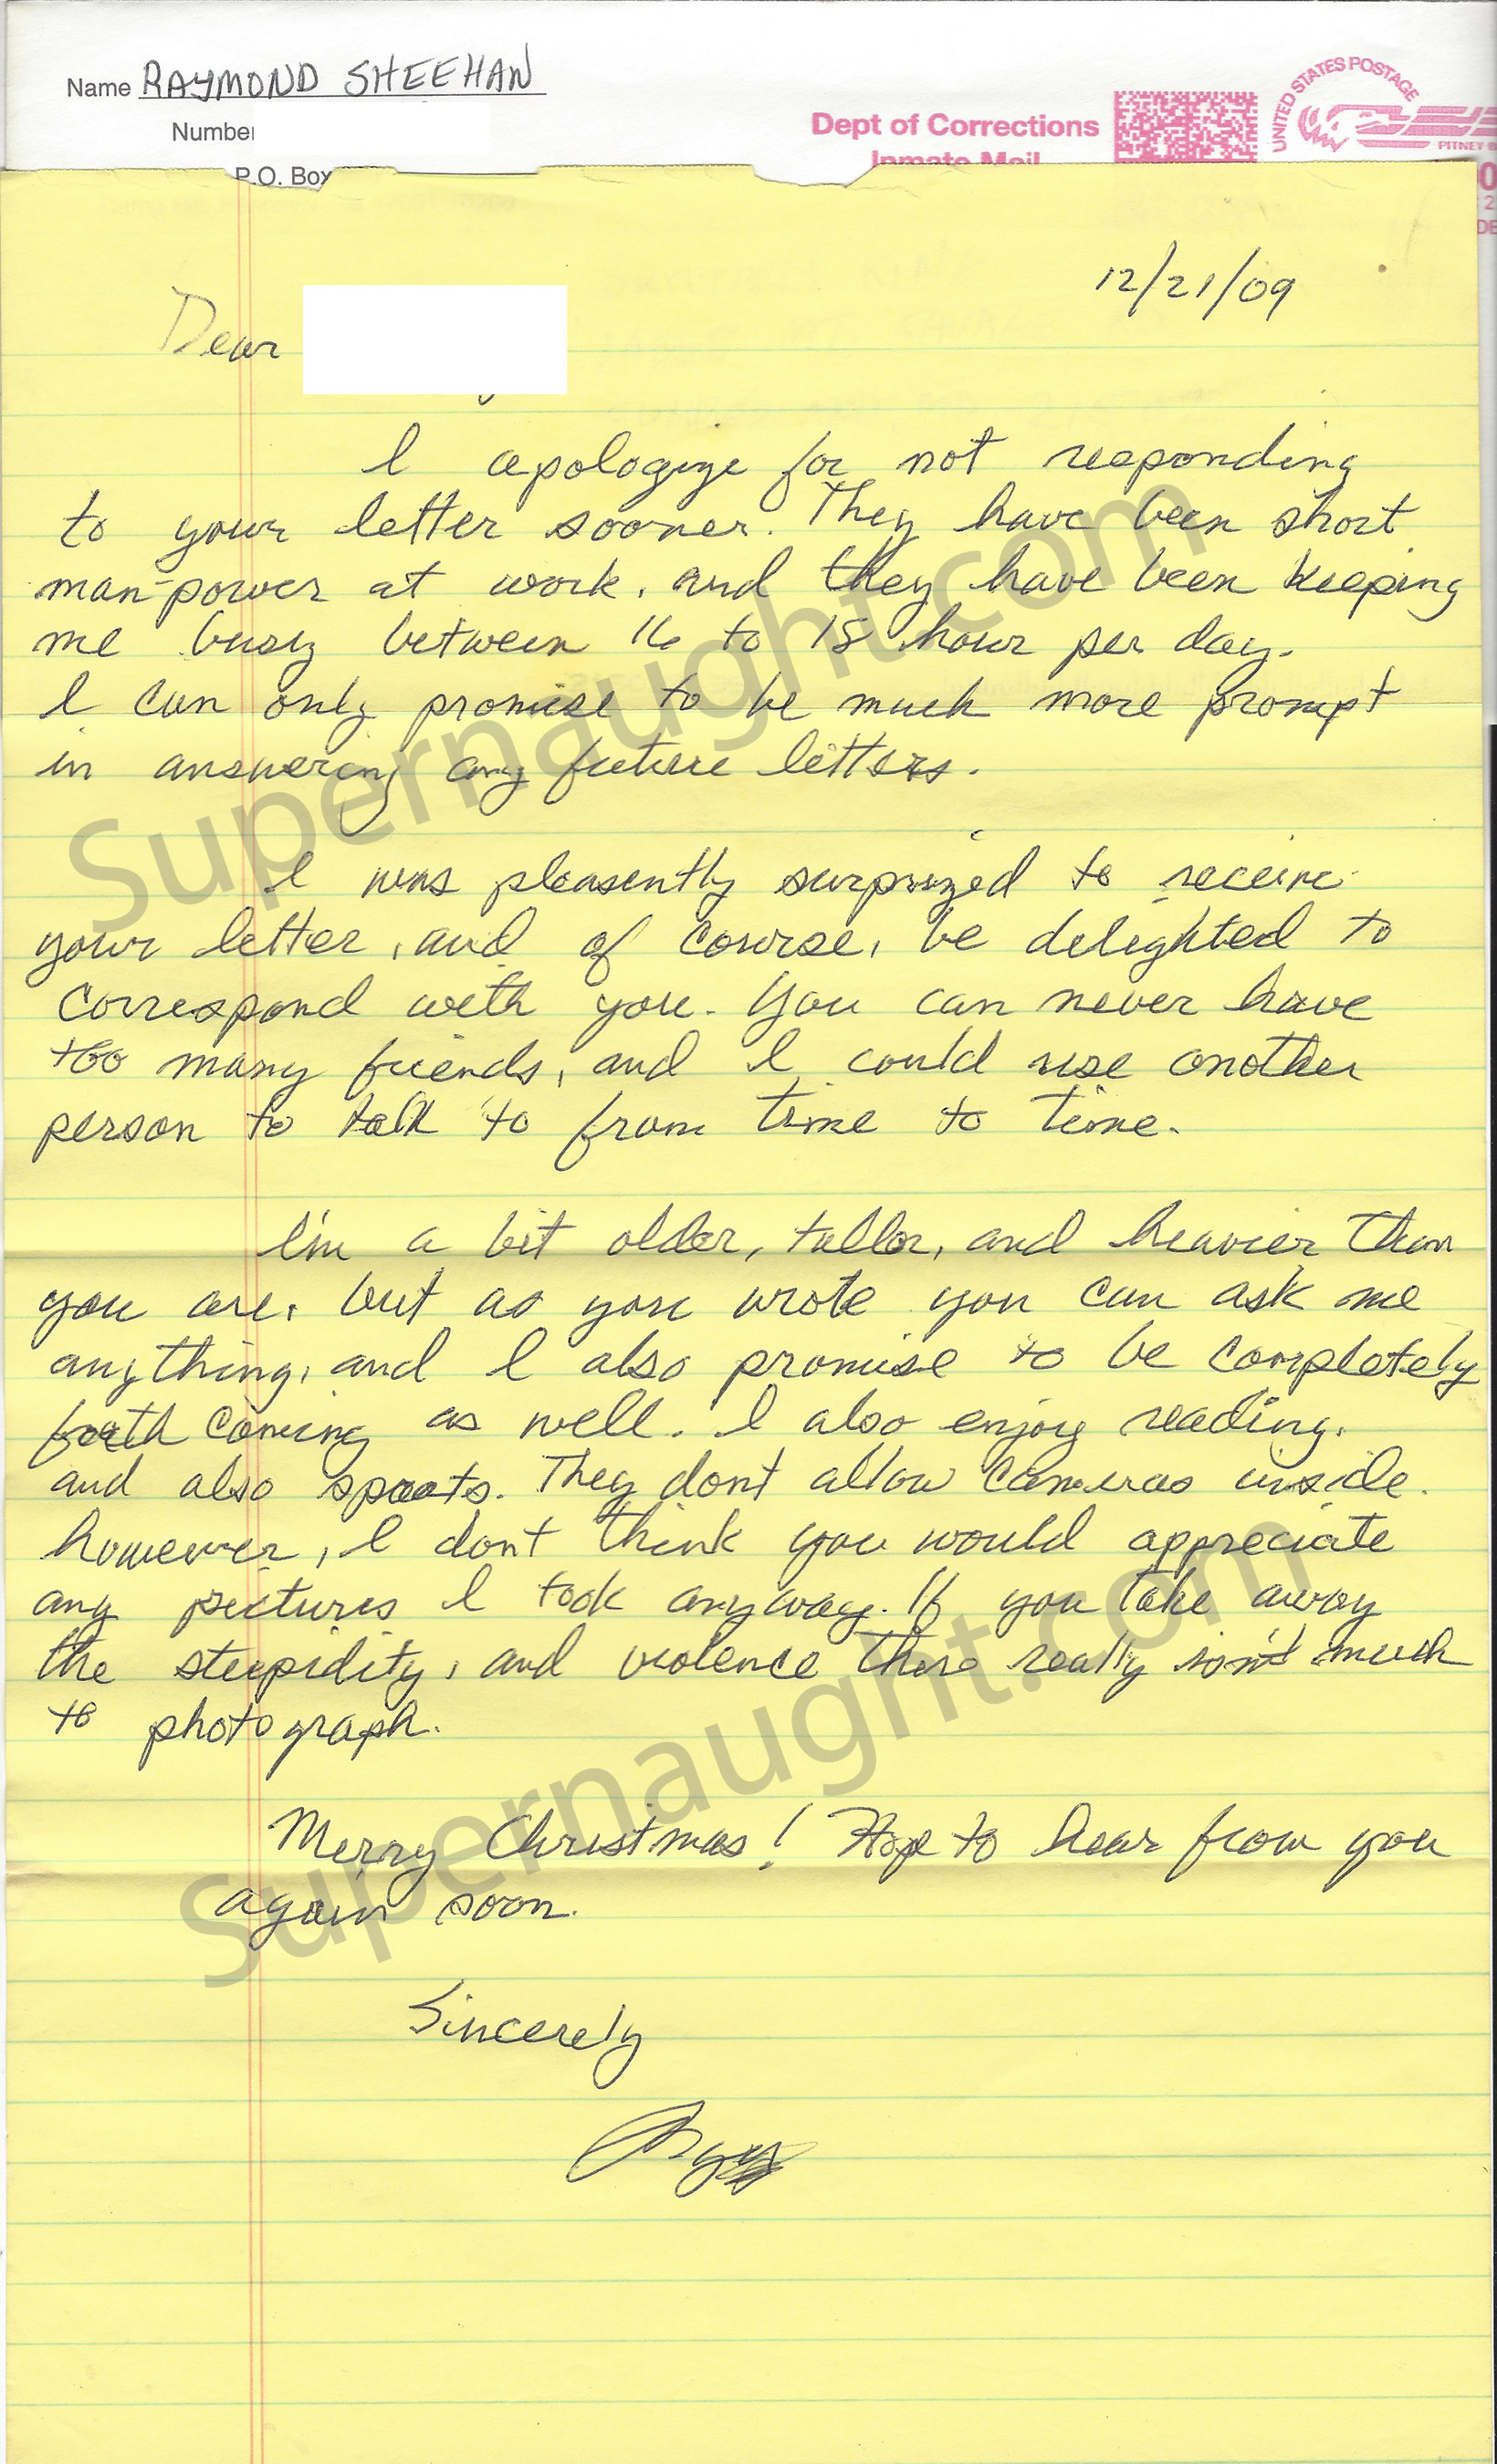 Name RAYMOND SHEEHAN
Number
P.O. Box
Dept of Corrections
Inmate Mail
UNITED STATES POSTAGE
PITNEY B
12/21/09
Dear
I apologize for not responding
to your letter sooner. They have been short
man-power at work, and they have been keeping
me busy between 16 to 18 hour per day.
I can only promise to be much more prompt
in answering any future letters.
I was pleasently surprized to receive
your letter, and of course, be delighted to
correspond with you. You can never have
too many friends, and I could use another
person to talk to from time to time.
I'm a bit older, taller, and heavier than
you are, but as you wrote you can ask me
anything, and I also promise to be completely
forth coming as well. I also enjoy reading,
and also sports. They dont allow cameras inside.
however, I dont think you would appreciate
any pictures I took anyway. If you take away
the stupidity, and violence there really isn't much
to photograph.
Merry Christmas! Hope to hear from you
again soon.
Sincerely
Supernaught.com
Supernaught.com